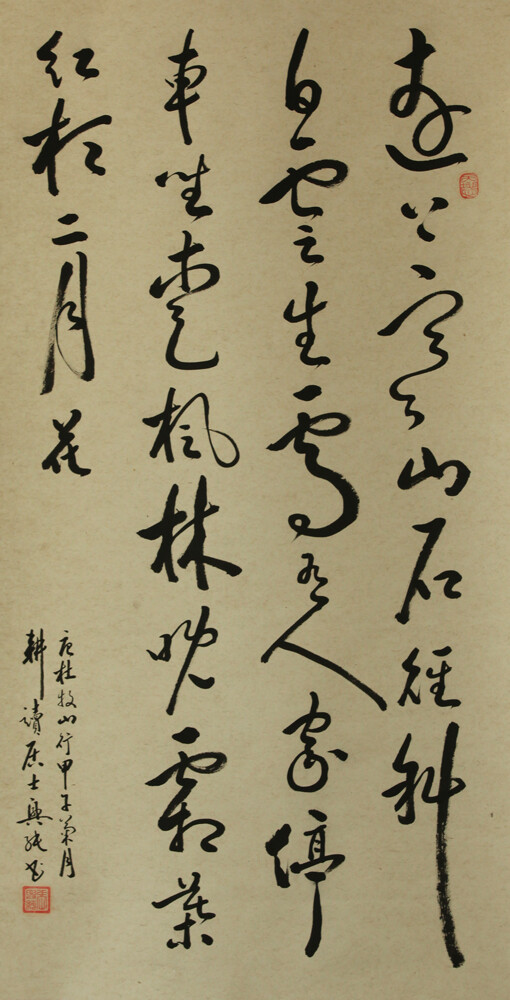 遠上寒山石徑斜
白雲生處有人家停
車坐愛楓林晚霜葉
紅於二月花
唐杜牧山行甲子菊月
耕讀居士興